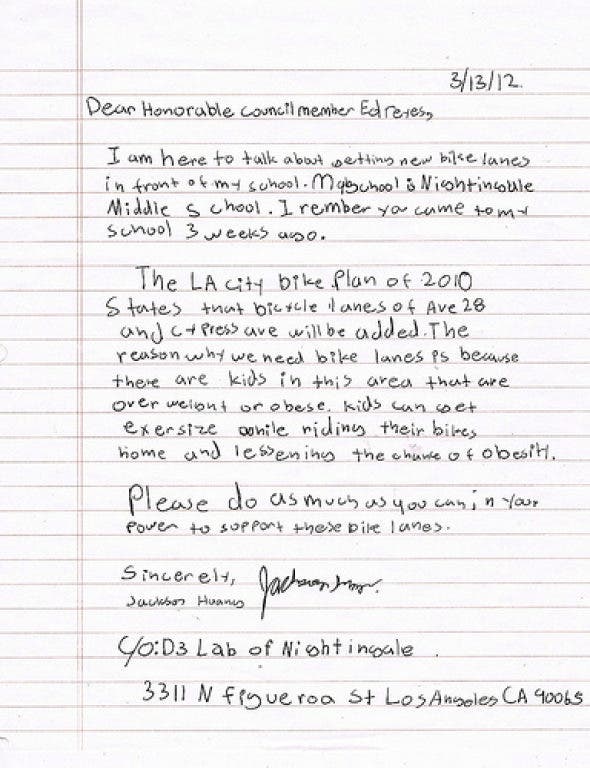 3/13/12.
Dear Honorable councilmember Ed reyes,
I am here to talk about getting new bike lanes
in front of my school. My school is Nightingale
Middle School. I rember you came to my
school 3 weeks ago.
The LA city bike Plan of 2010
States that bicycle lanes of Ave 28
and cypress ave will be added. The
reason why we need bike lanes is because
there are kids in this area that are
over weight or obese. kids can get
exersize while riding their bikes
home and lessening the chance of obesity.
Please do as much as you can in your
power to support these bike lanes.
Sincerely,
Jackson Huang
C/O: D3 Lab of Nightingale
3311 N figueroa St Los Angeles CA 90065